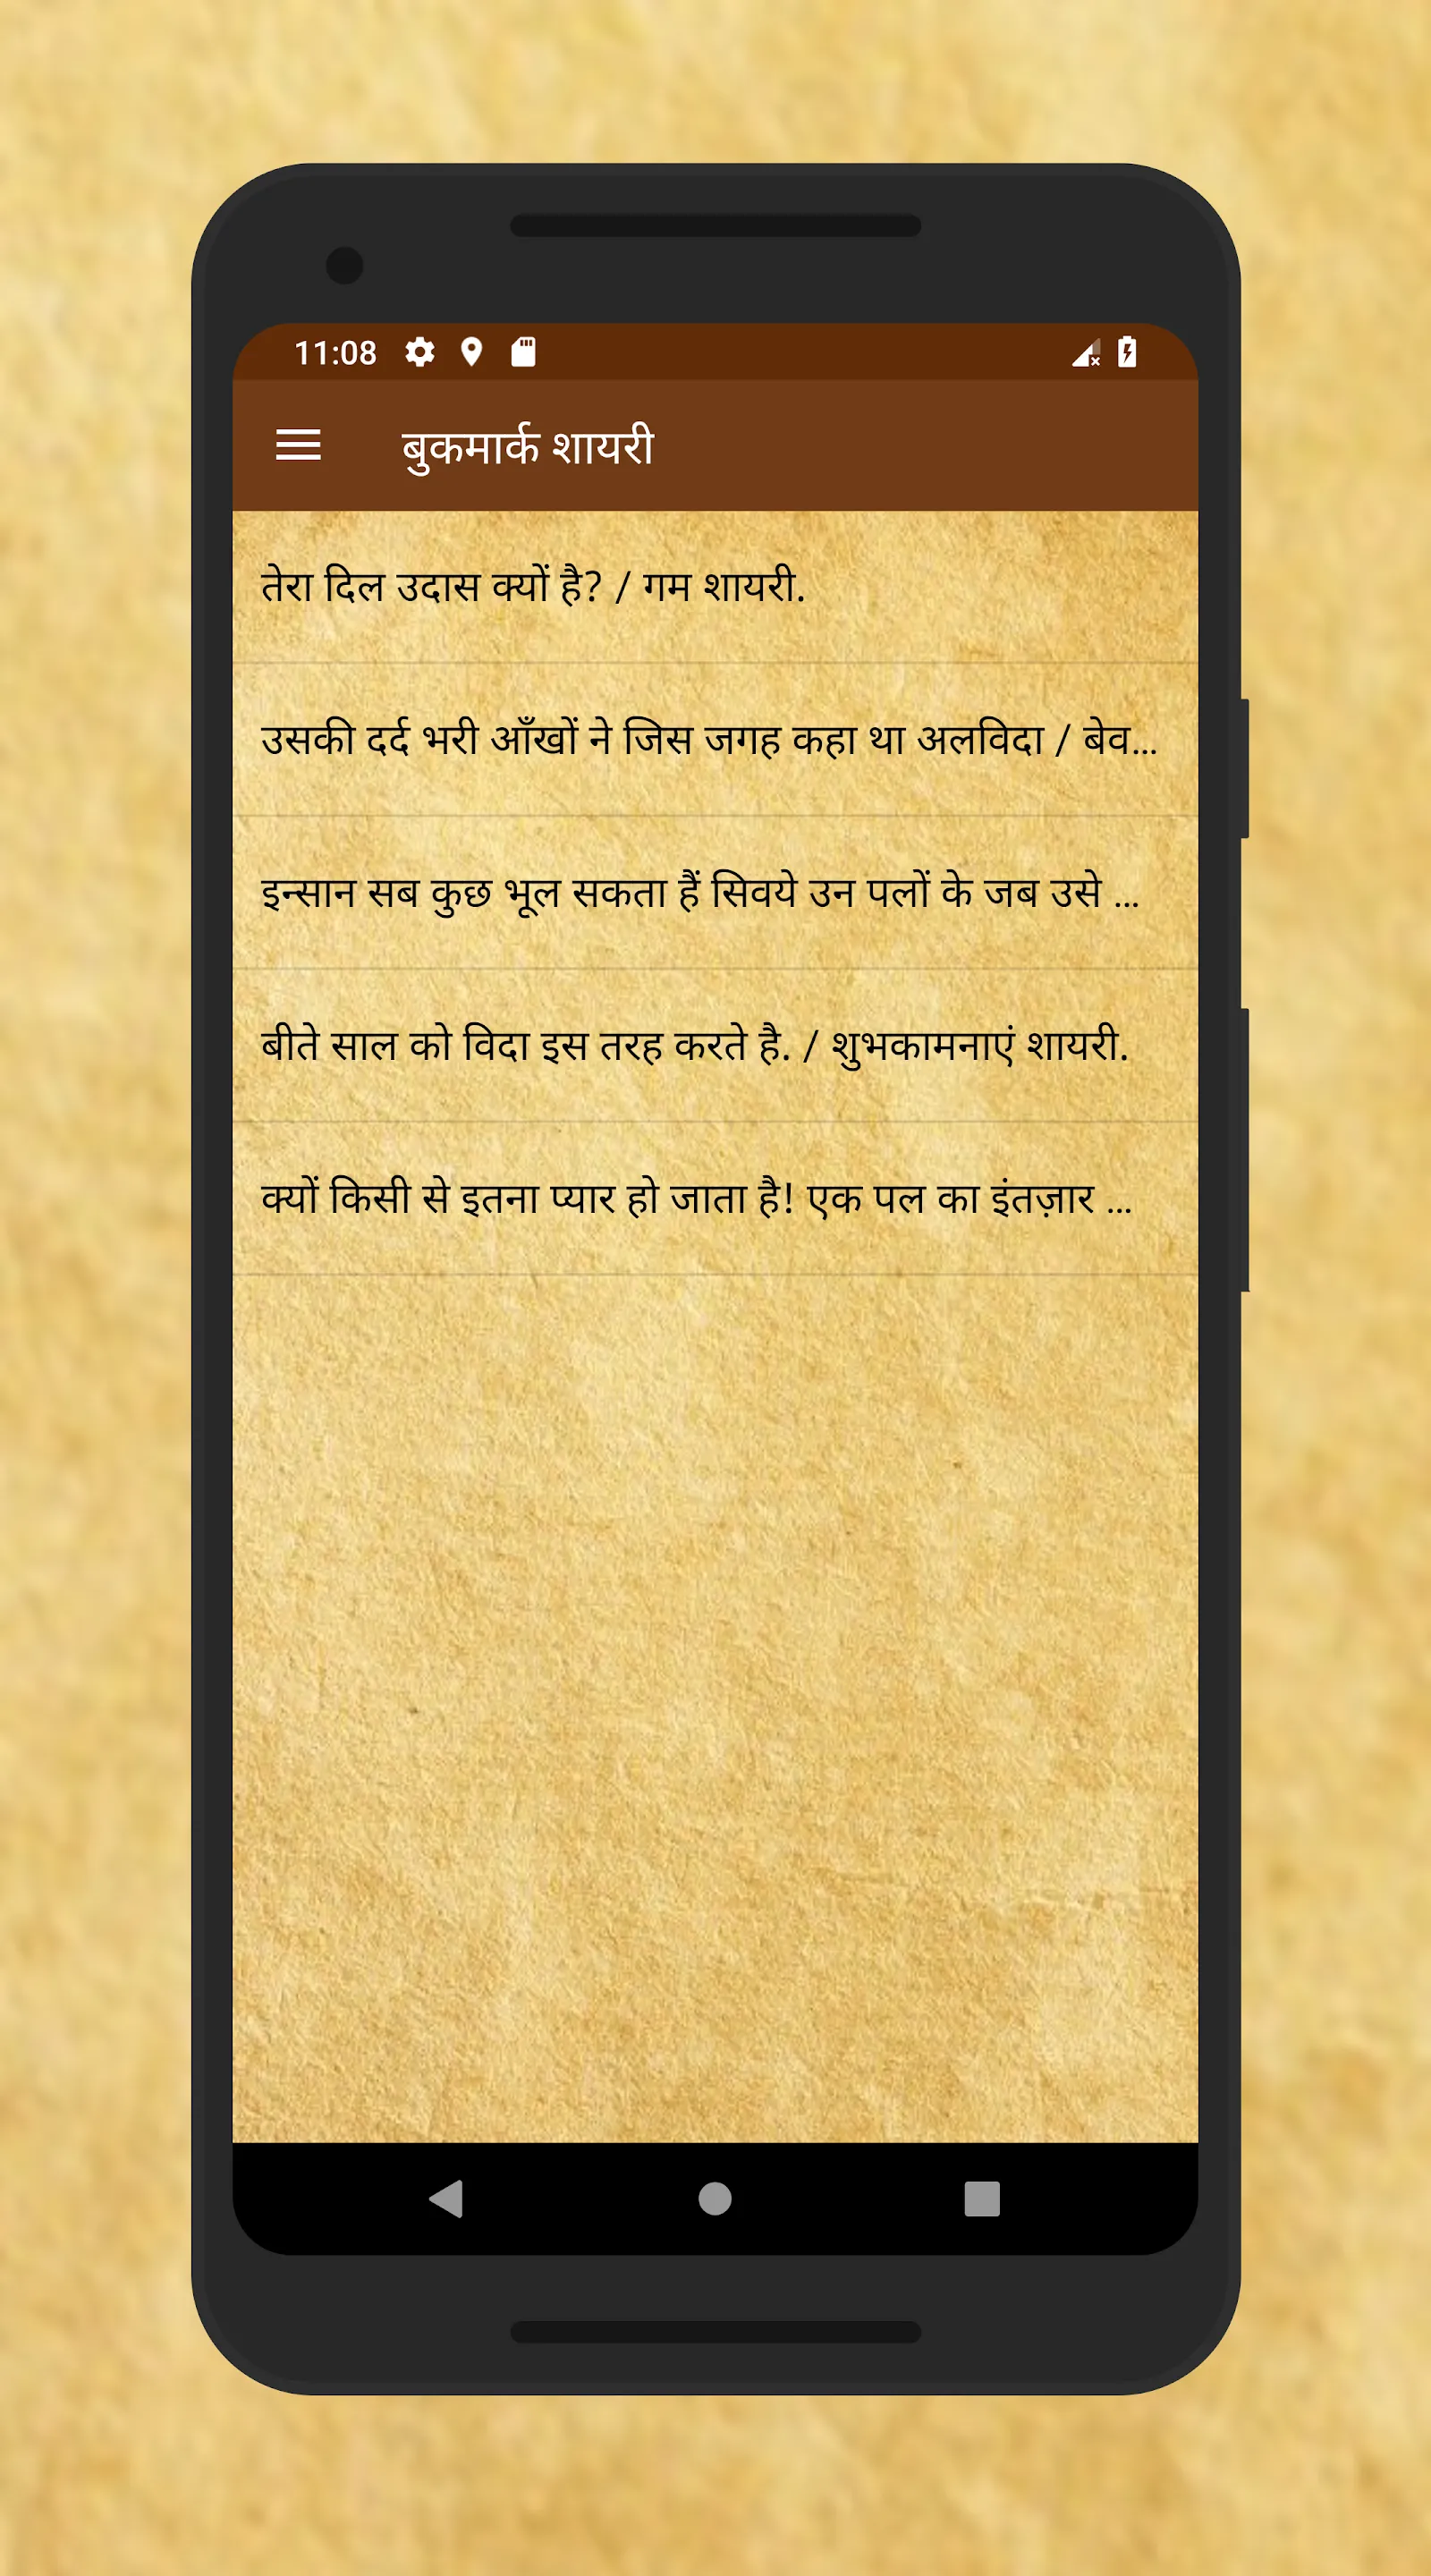 11:08
बुकमार्क शायरी
तेरा दिल उदास क्यों है? / गम शायरी.
उसकी दर्द भरी आँखों ने जिस जगह कहा था अलविदा / बेव...
इन्सान सब कुछ भूल सकता हैं सिवये उन पलों के जब उसे ...
बीते साल को विदा इस तरह करते है. / शुभकामनाएं शायरी.
क्यों किसी से इतना प्यार हो जाता है! एक पल का इंतज़ार ...